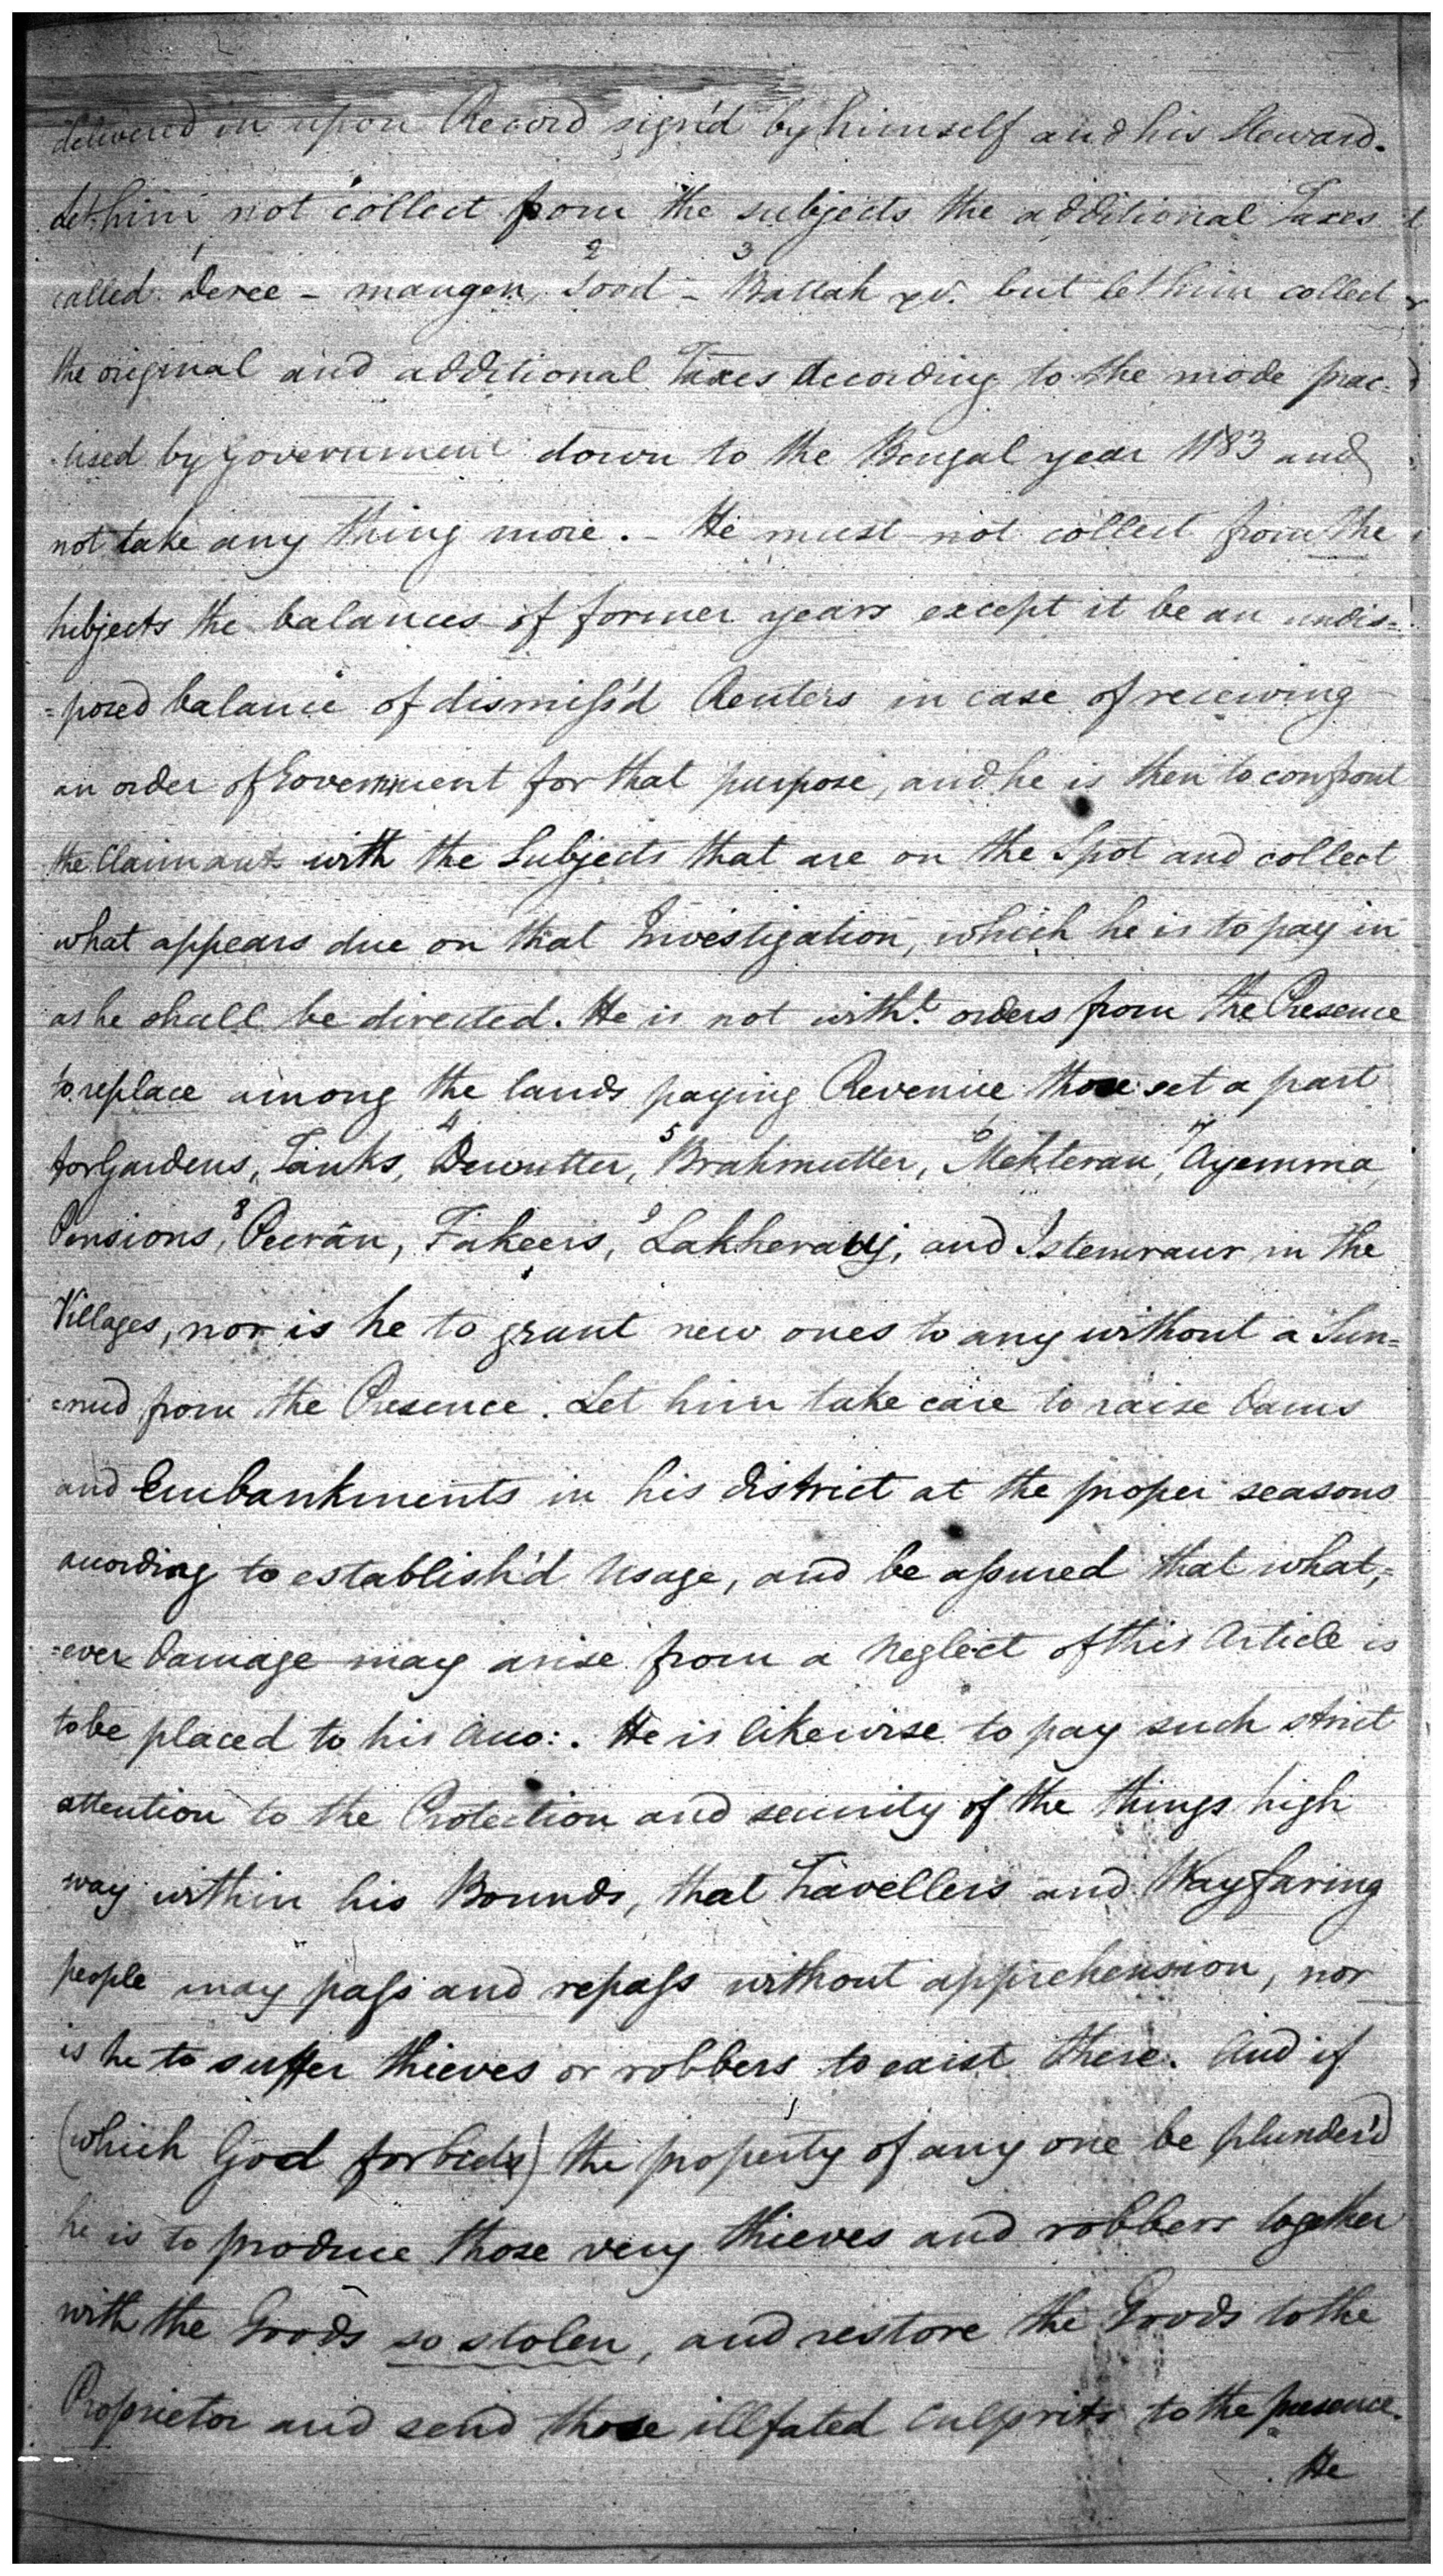 delivered in upon Record sign'd by himself and his Steward.
Let him not collect from the subjects the additional Taxes
called 1 Deree - maugen, 2 Sood - 3 Battah &c. but let him collect
the original and additional Taxes according to the mode prac-
tised by Government down to the Bengal year 1183 and
not take any thing more. - He must not collect from the
subjects the balances of former years except it be an undis=
=posed balance of dismiss'd Renters in case of receiving
an order of Government for that purpose, and he is then to confront
the Claimant with the Subjects that are on the Spot and collect
what appears due on that Investigation, which he is to pay in
as he shall be directed. He is not with.t orders from the Presence
to replace among the lands paying Revenue those set a part
for Gardens, Tanks, 4 Dewutter, 5 Brahmutter, 6 Mehteran, 7 Ayemma,
Pensions, 8 Peerân, Fakeers, 9 Lakherauj, and Istemraur in the
Villages, nor is he to grant new ones to any without a Sun=
=nud from the Presence. Let him take care to raise Dams
and Embankments in his district at the proper seasons
according to establish'd Usage, and be assured that what,=
=ever Damage may arise from a Neglect of this Article is
to be placed to his Acco:. He is likewise to pay such strict
attention to the Protection and security of the things high
way within his Bounds, that Travellers and Wayfaring
people may pass and repass without apprehension, nor
is he to suffer thieves or robbers to exist there. And if
(which God forbids) the property of any one be plunder'd
he is to produce those very thieves and robbers together
with the Goods so stolen, and restore the Goods to the
Proprietor and send those illfated Culprits to the presence.
He